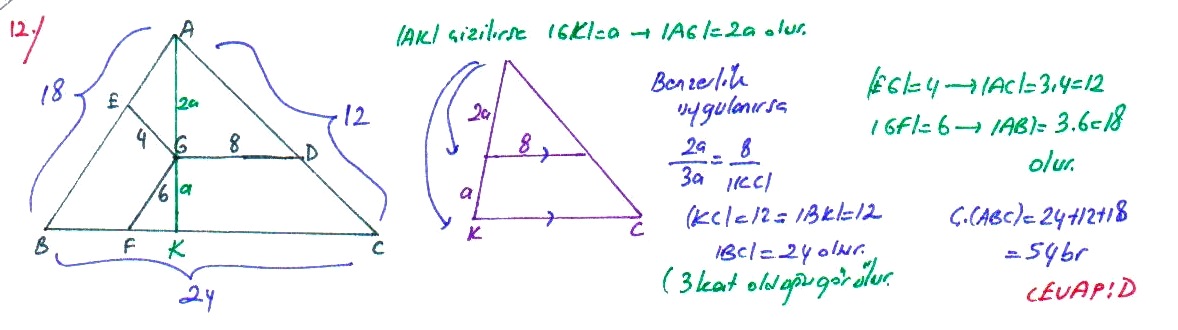 12.)
A
18
E
2a
12
4
G
8
D
6
a
B
F
K
C
24
[AK] çizilirse |GK|=a → |AG|=2a olur.
2a
8
a
K
C
Benzerlik
uygulanırsa
2a/3a = 8/|KC|
|KC|=12=|BK|=12
|BC|=24 olur.
(3 kat olduğu görülür.
|EG|=4 → |AC|=3.4=12
|GF|=6 → |AB|=3.6=18
olur.
Ç.(ABC)=24+12+18
=54br
CEVAP:D